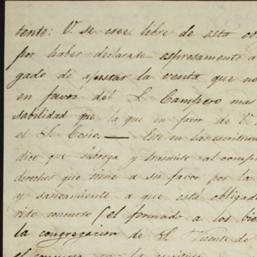 tente: V. se cree libre de esto
por haber declarado espresamente
gado de ajustar la venta que
en favor del S. Campero mas
sabilidad que la que en favor de V.
el S.
dice que subroga y trasmite al
derechos que tiene a su favor por la
y saneamiento a que está obligado
concurso (el formado a los
la congregacion de S. Vicente de